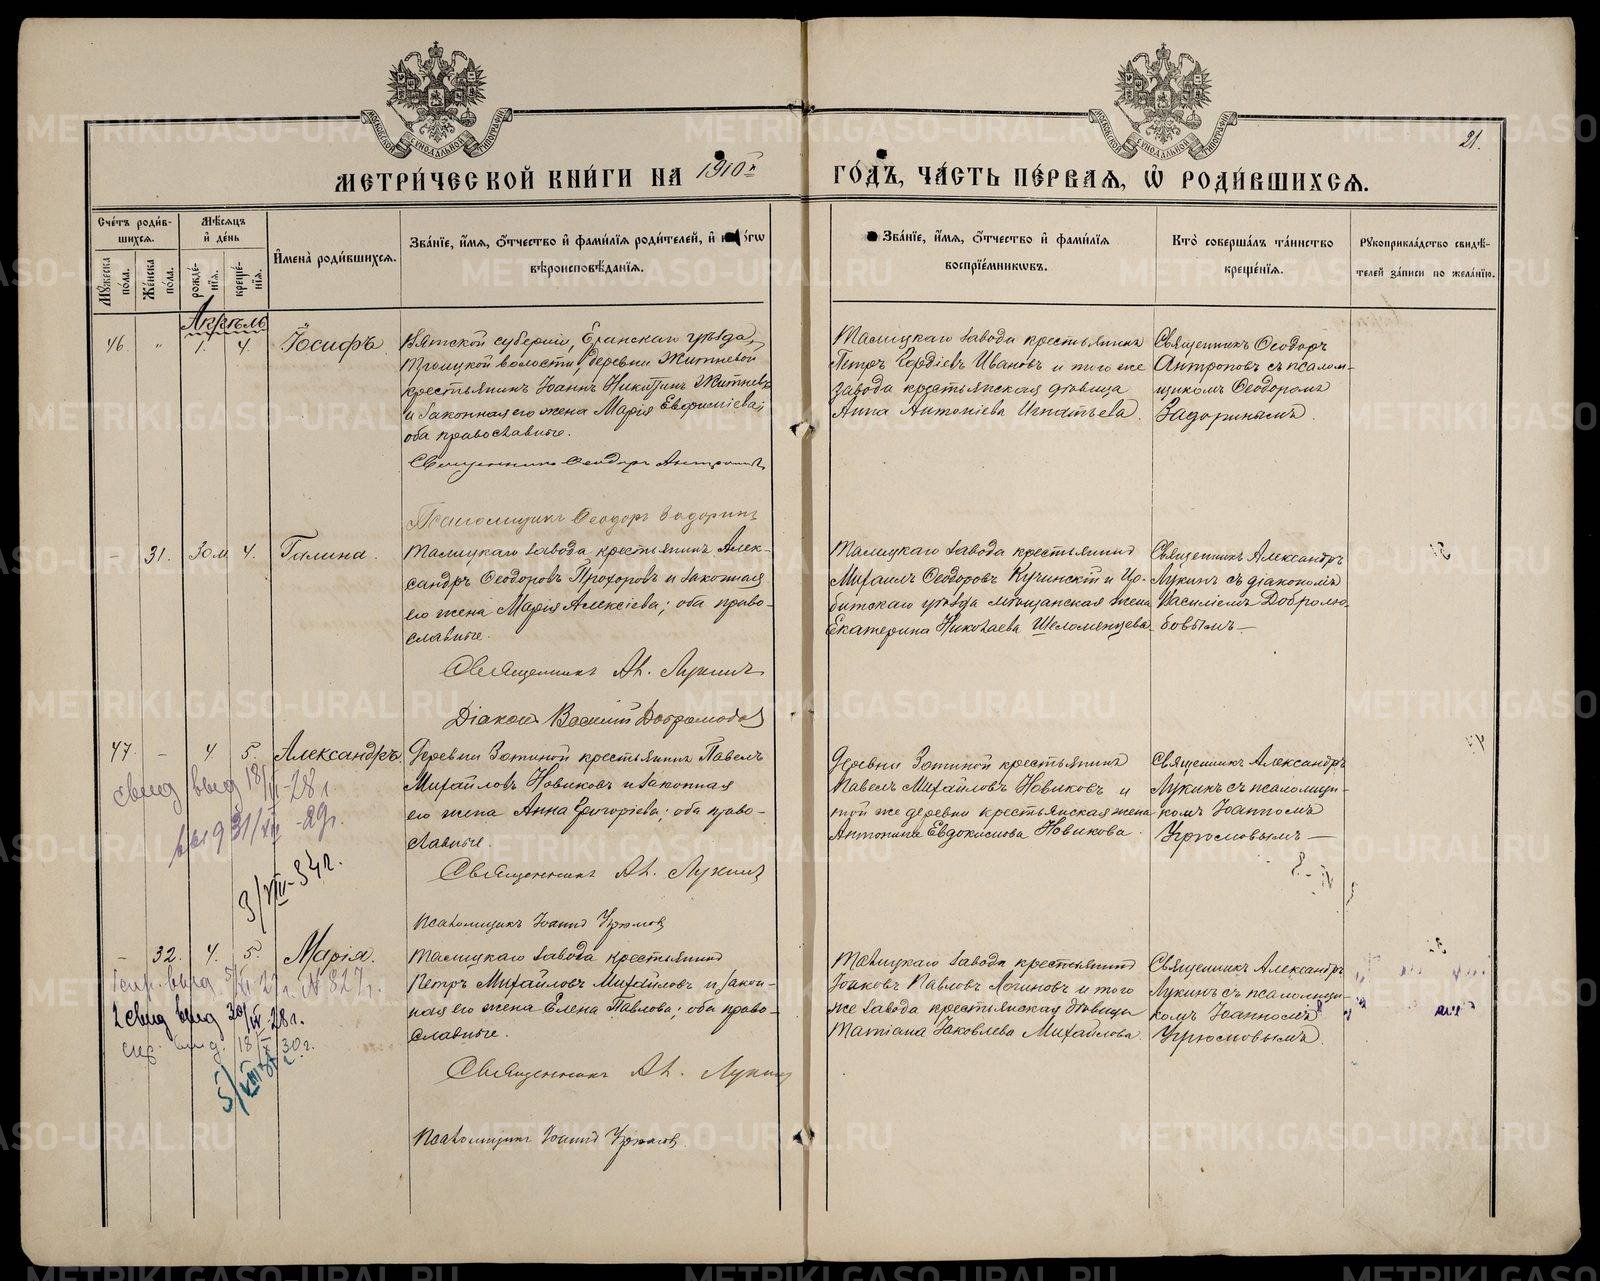 МЕТРИ́ЧЕСКОЙ КНИ́ГИ НА 1910й ГО́ДЪ, ЧА́СТЬ ПЕ́РВАЯ, Ѡ҆ РОДИ́ВШИХСЯ.
21.
Сче́тъ роди́вшихся.
Мꙋ́жеска по́ла.
Же́нска по́ла.
Мѣ́сяцъ и҆ де́нь
рожде́нїя.
креще́нїя.
И҆мена̀ роди́вшихся.
Зва́нїе, и҆́мя, ѻ҆́тчество и҆ фами́лїя роди́телей, и҆
вѣроисповѣ́данїя.
Зва́нїе, и҆́мя, ѻ҆́тчество и҆ фами́лїя
воспрїе́мникѡвъ.
Кто̀ соверша́лъ та́инство
креще́нїя.
Рꙋкоприкла́дство свидѣ́-
телей за́писи по жела́нїю.
Апрѣль
46. " 1. 4. Іосифъ
Вятской губерніи, Еланскаго уѣзда,
Троицкой волости, деревни Житневой
крестьянинъ Іоаннъ Никитинъ Житневъ
и законная его жена Марія Евфиміева;
оба православные.
Священникъ Ѳеодоръ Антроповъ
Псаломщикъ Ѳеодоръ Задоринъ
Талицкаго завода крестьянинъ
Петръ Гордіевъ Ивановъ и того же
завода крестьянская дѣвица
Анна Антоніева Игнатьева.
Священникъ Ѳеодоръ
Антроповъ съ псалом-
щикомъ Ѳеодоромъ
Задоринымъ.
– 31. 30 м. 4. Галина.
Талицкаго завода крестьянинъ Алек-
сандръ Ѳеодоровъ Прохоровъ и законная
его жена Марія Алексіева; оба право-
славные.
Священникъ Ал. Лукинъ
Діаконъ Василій Добролюбовъ
Талицкаго завода крестьянинъ
Михаилъ Ѳеодоровъ Кучинскій и Ир-
битскаго уѣзда мѣщанская жена
Екатерина Николаева Шеломенцева
Священникъ Александръ
Лукинъ съ діакономъ
Василіемъ Добролю-
бовымъ.
47. – 4. 5. Александръ.
Деревни Зотиной крестьянинъ Павелъ
Михайловъ Новиковъ и законная
его жена Анна Григоріева; оба право-
славные.
Священникъ Ал. Лукинъ
Псаломщикъ Іоаннъ Угрюмовъ
Деревни Зотиной крестьянинъ
Павелъ Михайловъ Новиковъ и
той же деревни крестьянская жена
Антонина Евдокимова Новикова.
Священникъ Александръ
Лукинъ съ псаломщи-
комъ Іоанномъ
Угрюмовымъ
свид выд 18/VI-28 г
выд 31/XII-29г.
3/VIII-34г.
– 32. 4. 5. Марія.
Талицкаго завода крестьянинъ
Петръ Михайловъ Михайловъ и закон-
ная его жена Елена Павлова; оба право-
славные.
Священникъ Ал. Лукинъ
Псаломщикъ Іоаннъ Угрюмовъ
Талицкаго завода крестьянинъ
Іоаковъ Павловъ Логиновъ и того
же завода крестьянская дѣвица
Татіана Іаковлева Михайлова.
Священникъ Александръ
Лукинъ съ псаломщи-
комъ Іоанномъ
Угрюмовымъ.
№ 827
2 свид выд 30/IV-28г.
выд. 18/X 30г.